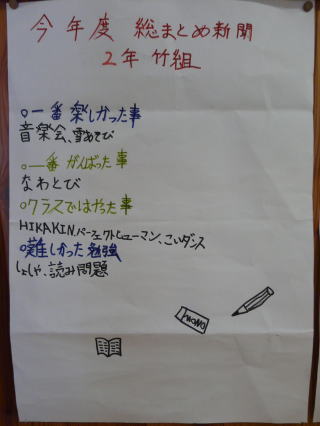 今年度 総まとめ新聞
2年 竹組
○一番 楽しかった事
音楽会、雪あそび
○一番 がんばった事
なわとび
○クラスではやった事
HIKAKIN、パーフェクトヒューマン、こいダンス
○難しかった 勉強
しょしゃ、読み問題
MONO